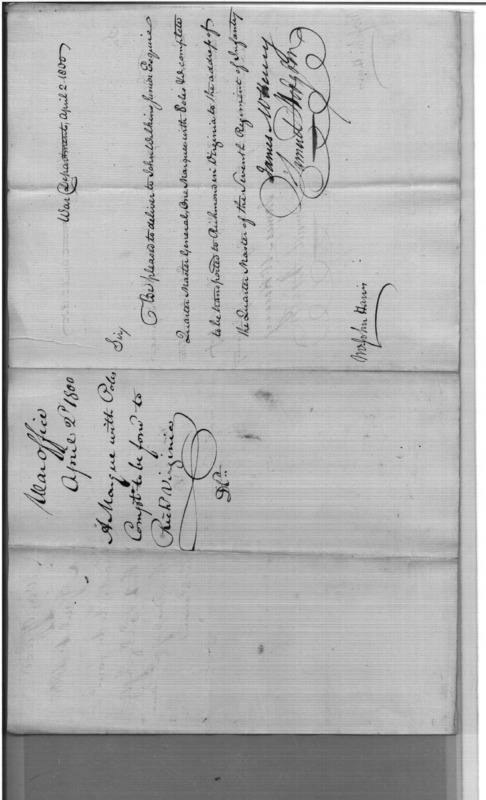 War Department, April 2. 1800
Sir,
Be pleased to deliver to John Wilkins Junior Esquire
Quarter Master General, One Marquee with Poles &c. complete
to be transported to Richmond in Virginia to the address of
the Quarter Master of the Seventh Regiment of Infantry
James McHenry
Samuel Hodgdon
Mr John Harris
War office
April 2d 1800
A Marque with Poles
Compt. to be forwd to
Richd Virginia